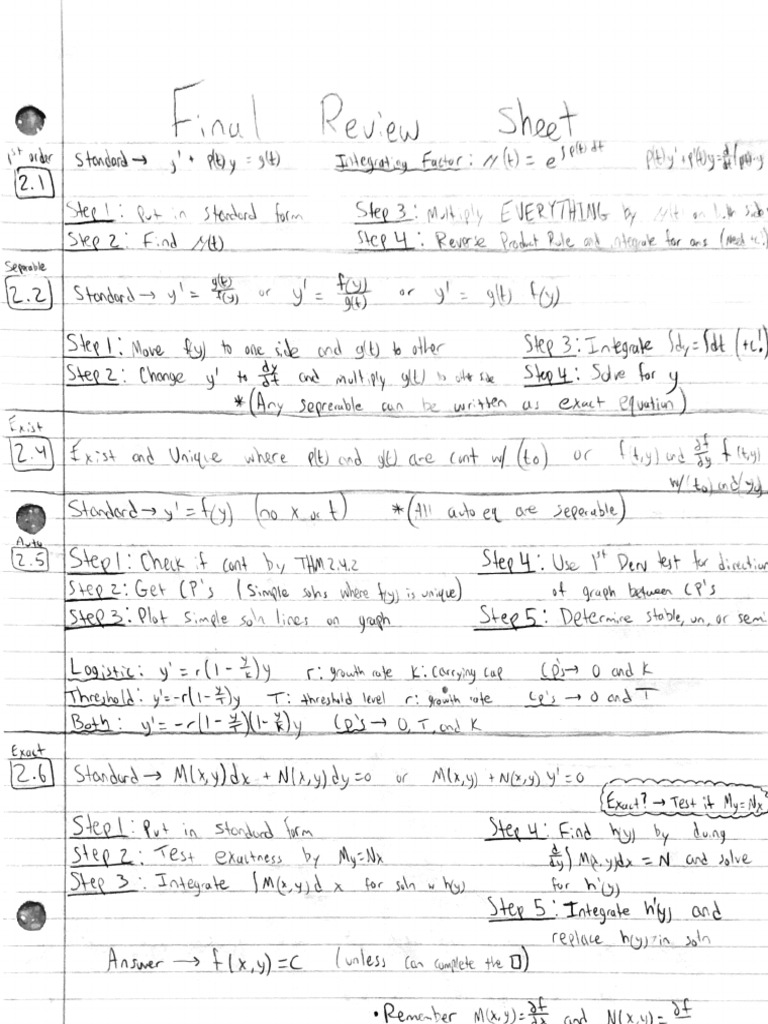 Final Review Sheet
1st order
2.1
Standard → y' + p(t)y = g(t)   Integrating Factor: μ(t) = e^∫p(t)dt
Step 1: Put in standard form   Step 3: Multiply EVERYTHING by μ(t) on both
Step 2: Find μ(t)   Step 4: Reverse Product Rule and integrate for ans
Seperable
2.2
Standard → y' = g(t)/f(y) or y' = f(y)/g(t) or y' = g(t) f(y)
Step 1: Move f(y) to one side and g(t) to other   Step 3: Integrate ∫dy = ∫dt (+c!)
Step 2: Change y' to dy/dt and multiply g(t) to other side   Step 4: Solve for y
*(Any seprerable can be written as exact equation)
Exist
2.4
Exist and Unique where p(t) and g(t) are cont w/ (to) or f(t,y) and ∂f/∂y f(t,y)
w/(to) and
Standard → y' = f(y) (no x or t)   *(All auto eq are seperable)
Auto
2.5
Step 1: Check if cont by THM 2.4.2   Step 4: Use 1st Derv test for direction
Step 2: Get CP's (Simple solns where f(y) is unique)   of graph between CP's
Step 3: Plot simple soln lines on graph   Step 5: Determine stable, un, or semi
Logistic: y' = r(1 - y/k)y   r: growth rate   K: carrying cap   Cp's → 0 and K
Threshold: y' = -r(1 - y/T)y   T: threshold level   r: growth rate   Cp's → 0 and T
Both: y' = -r(1 - y/T)(1 - y/k)y   Cp's → 0, T, and K
Exact
2.6
Standard → M(x,y)dx + N(x,y)dy=0 or M(x,y) + N(x,y) y' = 0
Exact? → Test if My=Nx
Step 1: Put in standard form   Step 4: Find h(y) by doing
Step 2: Test exactness by My=Nx   d/dy ∫M(x,y)dx = N and solve
Step 3: Integrate ∫M(x,y)d x for soln w h(y)   for h'(y)
Step 5: Integrate h'(y) and
replace h(y) in soln
Answer → f(x,y)=C (unless can complete the □)
• Remember M(x,y)=∂f/∂x and N(x,y)=∂f